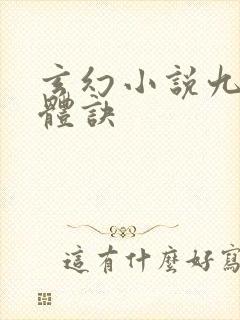 玄幻小説九
體訣
這有什麼好寫